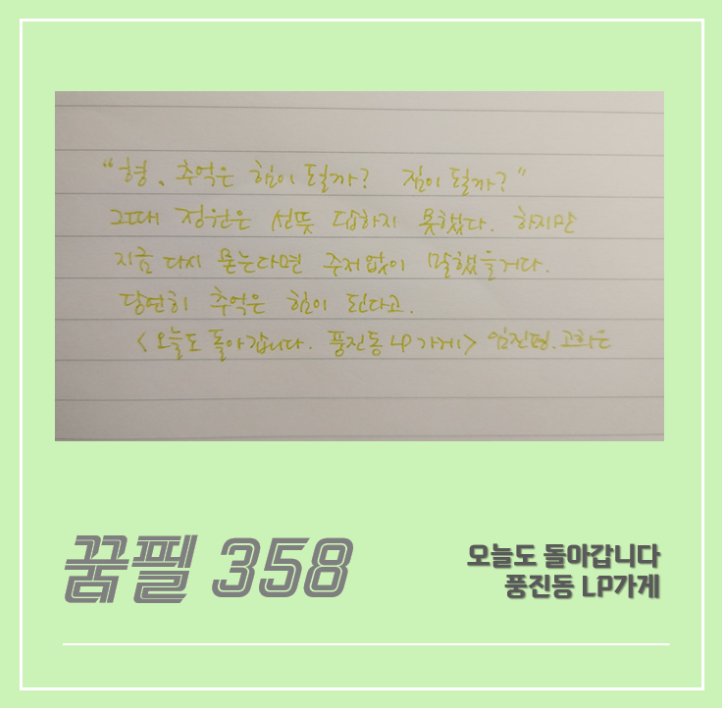 "형, 추억은 힘이 될까? 짐이 될까?"
그때 정원은 선뜻 답하지 못했다. 하지만
지금 다시 묻는다면 주저없이 말했을거다.
당연히 추억은 힘이 된다고.
<오늘도 돌아갑니다. 풍진동 LP가게> 임진평.고희은
꿈필 358
오늘도 돌아갑니다
풍진동 LP가게